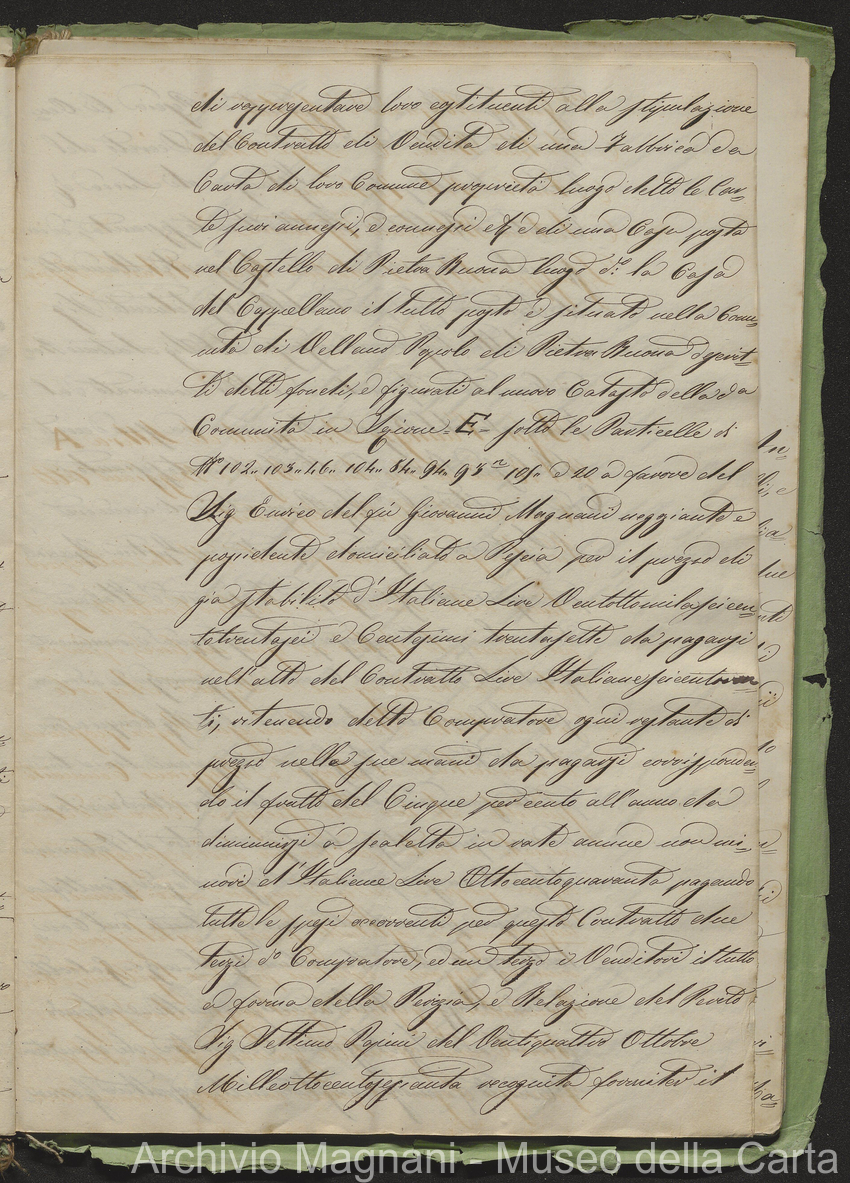 di rappresentare loro costituenti alla stipulazione
del Contratto di Vendita di una Fabbrica da
Carta di loro Comune proprietà luogo detto le Car=
te suoi annessi, e connessi e di una Casa posta
nel Castello di Pietra Buona luogo d.o la Casa
del Cappellano il tutto posto e situato nella Comu=
nità di Vellano Popolo di Pietra Buona descrit=
ti detti fondi, e figurati al nuovo Catasto della da
Comunità in Sezione = E = sotto le Particelle di
N.o 102.. 103.. 46.. 104.. 84.. 94.. 93 105.. e 20 a favore del
Sig Enrico del fù Giovanni Magnani negoziante e
possidente domiciliato a Pescia per il prezzo di
già stabilito d'Italiane Lire Ventottomilaseicen=
totrentasei e Centesimi trentasette da pagarsi
nell'atto del Contratto Lire Italiane seicentoven
ti, ritenendo detto Compratore ogni restante di
prezzo nelle sue mani da pagarsi corrisponden=
do il frutto del Cinque per cento all'anno da
dimmersi a scaletta in rate annue non mi=
nori d'Italiane Lire Ottocentoquaranta pagando
tutte le spese occorrenti per questo Contratto due
terzi d.o Compratore, ed un terzo i Venditori il tutto
a forma della Perizia, e Relazione del Perito
Sig Settimo Papini del Ventiquattro Ottobre
Milleottocentosessanta recognita il
Archivio Magnani - Museo della Carta